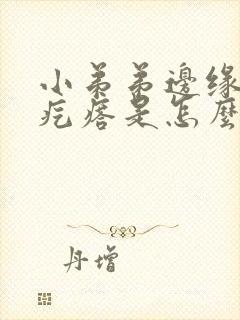 小弟弟邊緣
疙瘩是怎麼
丹增